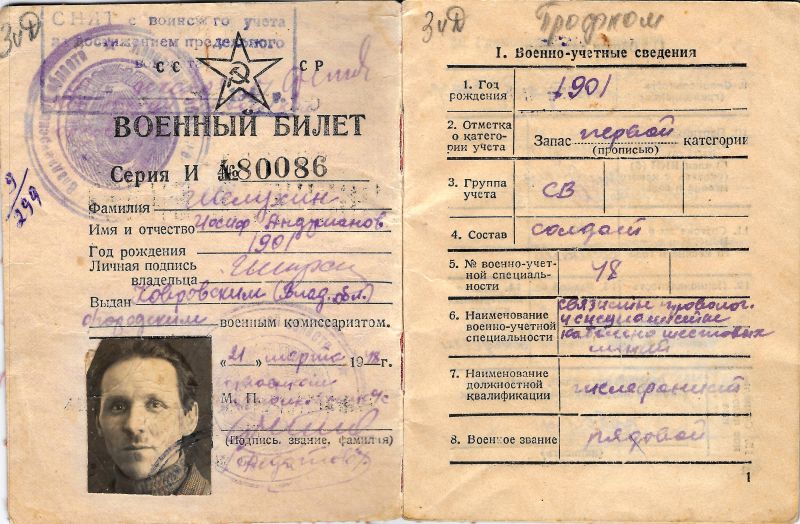 СНЯТ с воинского учета
по достижением предельного
СС СР
ВОЕННЫЙ БИЛЕТ
Серия И №80086
Фамилия Шелухин
Имя и отчество Иосиф Андрианов
Год рождения 1901
Личная подпись
владельца
Выдан Ковровским (Влад. обл.)
городским военным комиссариатом.
„21" марта 1948г.
М. П.
(Подпись, звание, фамилия)
9/299
ЗиД
ЗиД
I. Военно-учетные сведения
1. Год
рождения 1901
2. Отметка
о катего-
рии учета Запас первой категории
(прописью)
3. Группа
учета СВ
4. Состав солдат
5. № военно-учет-
ной специаль-
ности 48
6. Наименование
военно-учетной
специальности связисты проволоч.
и специалисты
кабельно шестовых
линий
7. Наименование
должностной
квалификации
8. Военное звание рядовой
1